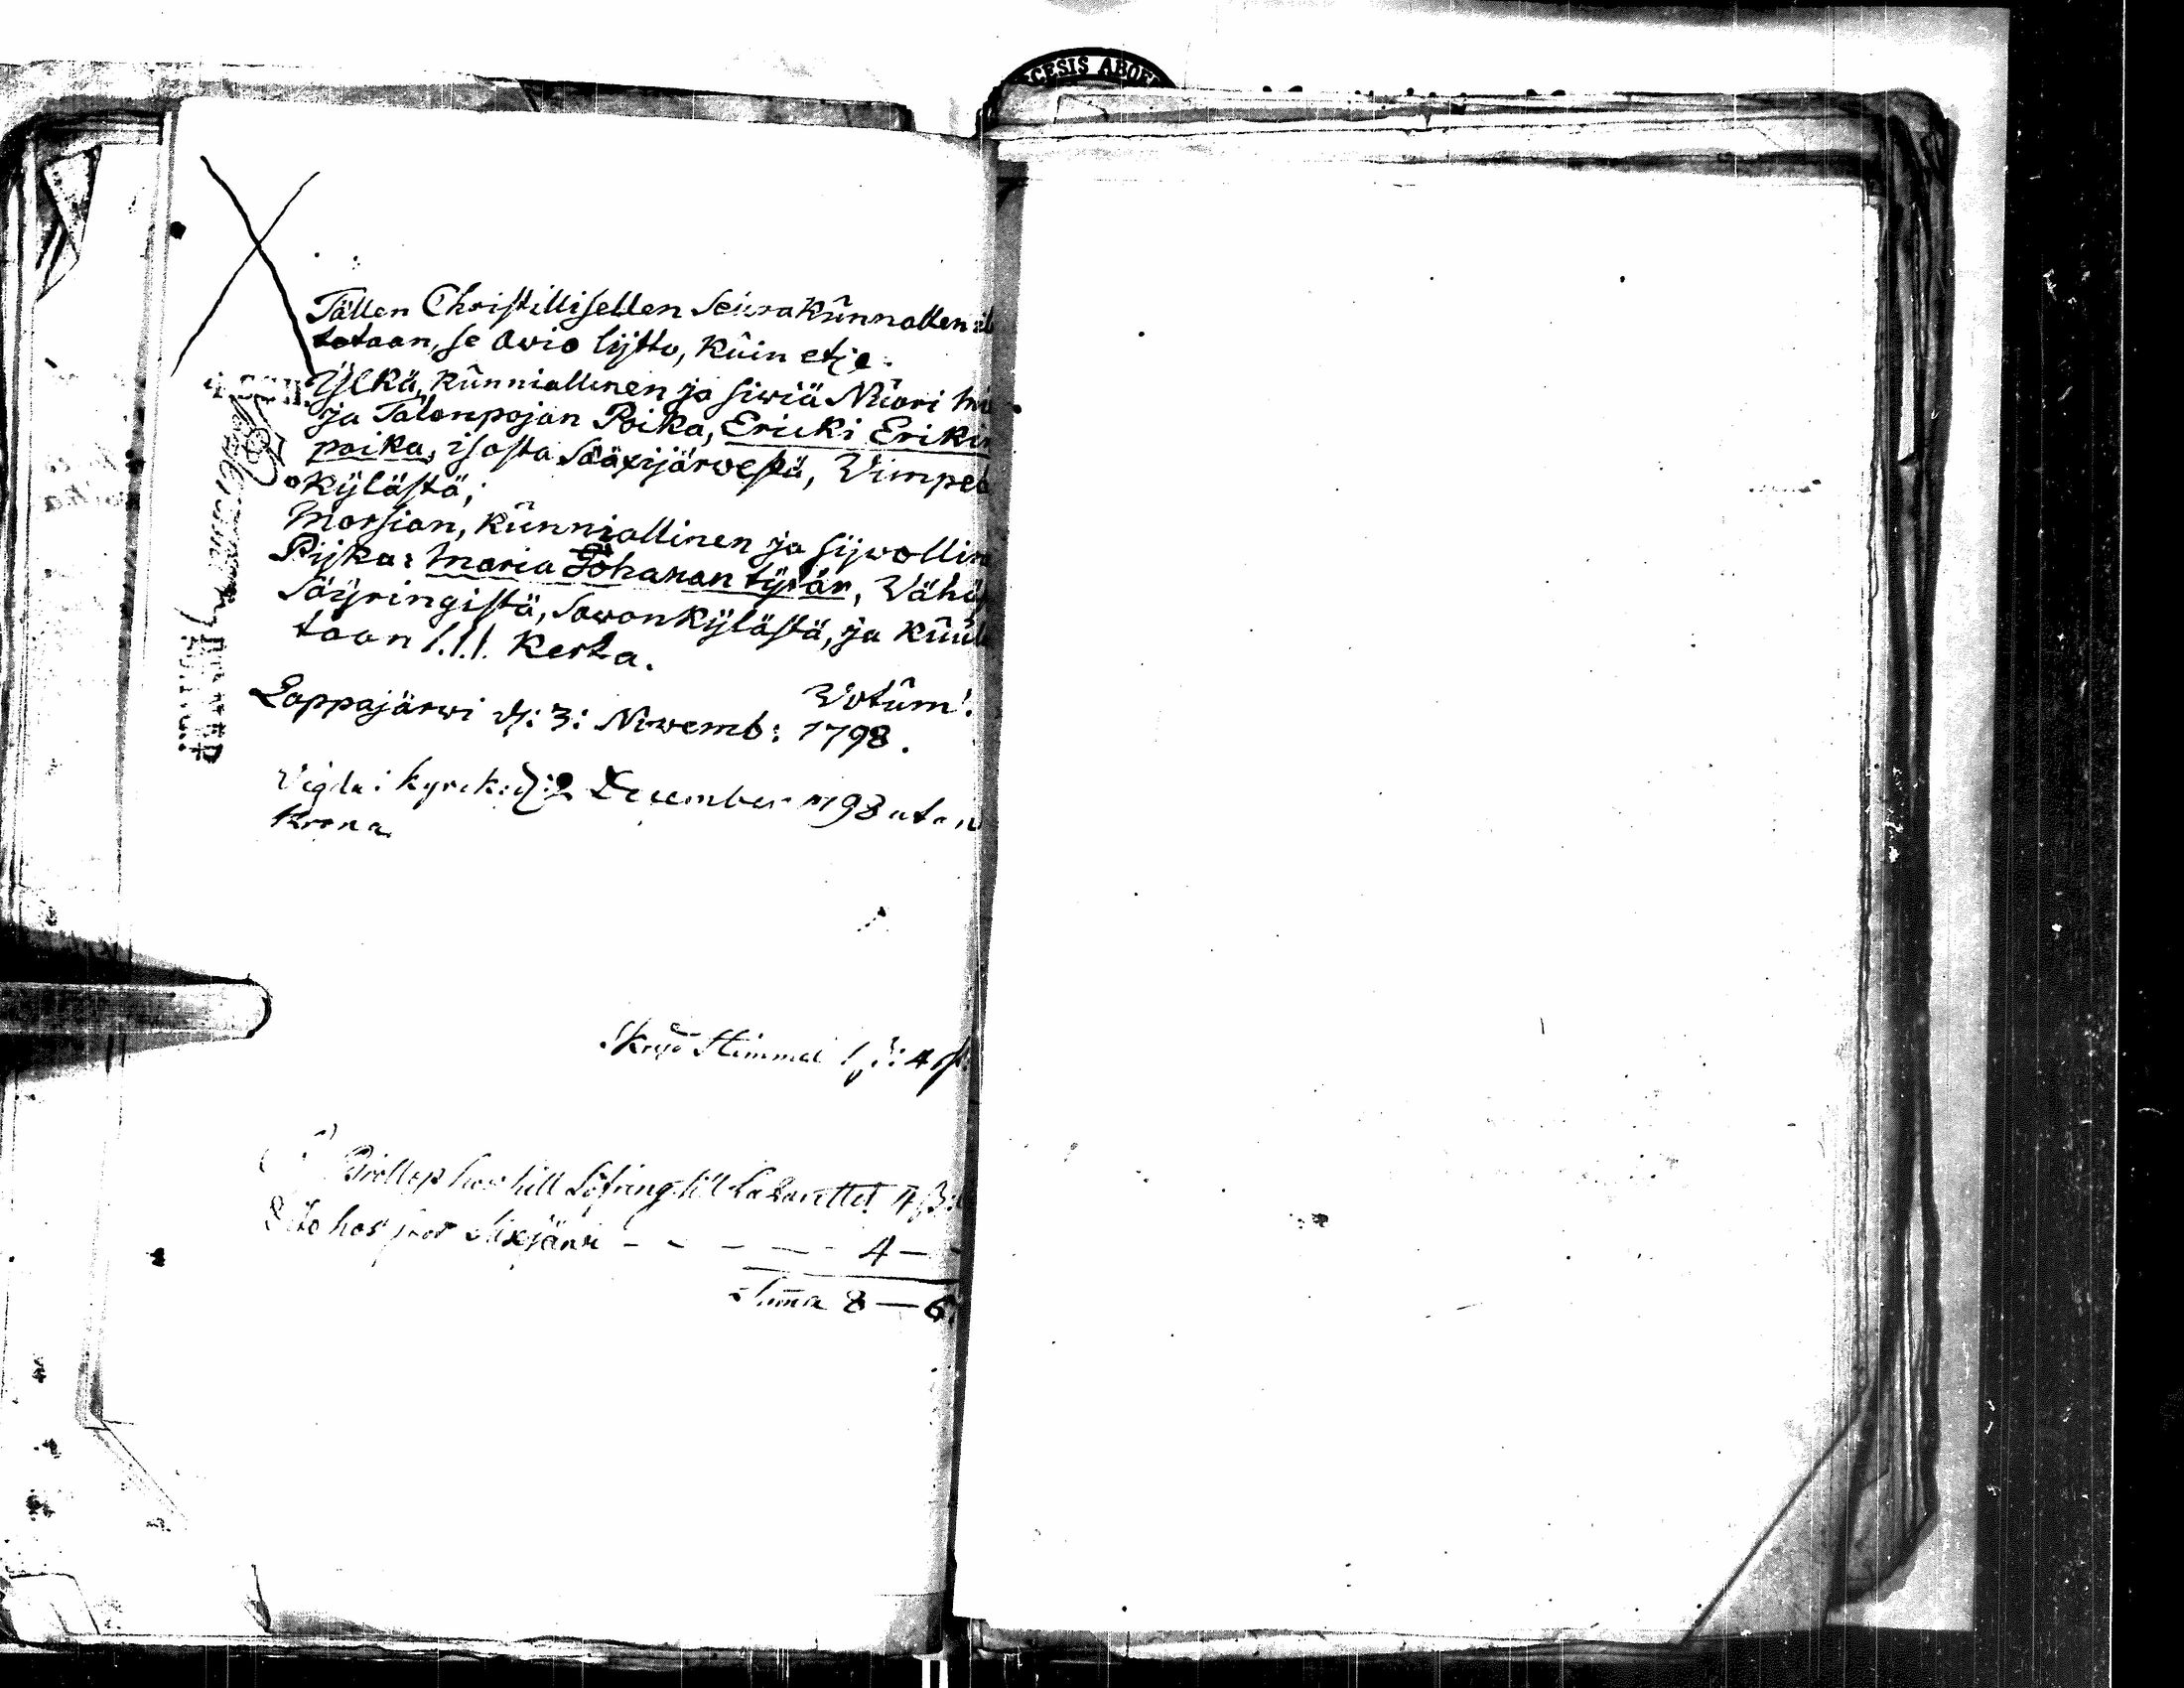 CESIS ABOE
Tällen Christillisellen Seurakûnnallen il
totaan, se Avio lijtto, kûin etje.
Ylkä, kûnniallinen ja siwiä Nûori Mi
ja Talonpojan Poika, Ericki Erikin
poika, isosta Sääxijärwestä, Vimpel
kylästä;
Morsian, kûnniallinen ja sijwollin
Pijka: Maria Johanan tytär, Vähä
Säyringistä, Sawonkylästä, ja kûul
taan 1.1.1. kerta.
Votûm!
Lappajärwi d: 3: Novemb: 1798.
Vigda i kyrck: d: 2 December 1798 utan
Krona
4 ß:
Bröllop hos till Löfring till Lazarettet 4 ß:
hos 4 —
Suma 8 — 6: